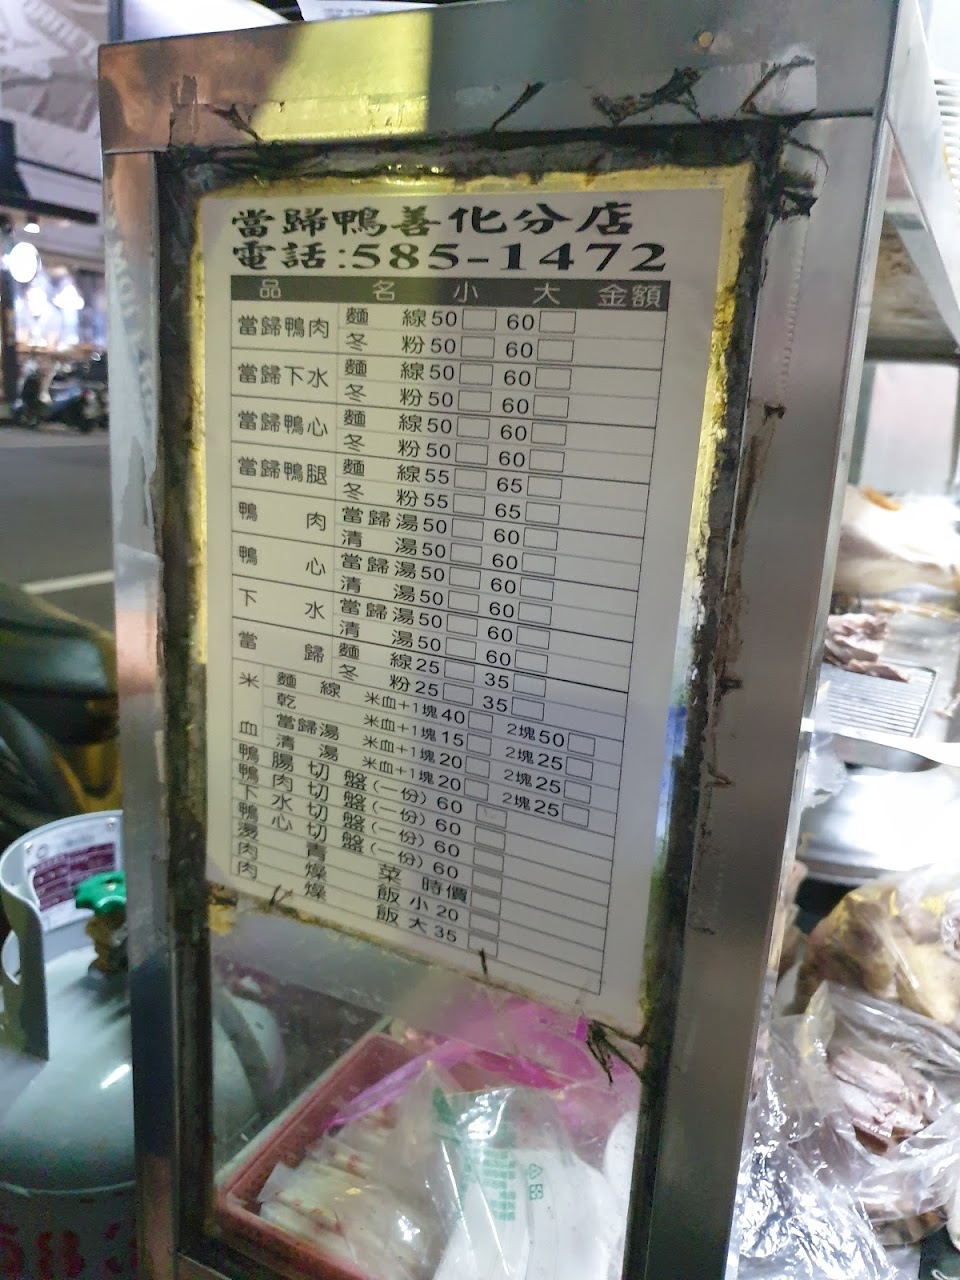 當歸鴨善化分店
電話:585-1472
品名 小 大 金額
當歸鴨肉 麵線50 60
冬粉50 60
當歸下水 麵線50 60
冬粉50 60
當歸鴨心 麵線50 60
冬粉50 60
當歸鴨腿 麵線55 65
冬粉55 65
鴨肉 當歸湯50 60
清湯50 60
鴨心 當歸湯50 60
清湯50 60
下水 當歸湯50 60
清湯50 60
當歸 麵線25 35
冬粉25 35
米血 麵線 米血+1塊40 2塊50
乾 米血+1塊15 2塊25
當歸湯 米血+1塊20 2塊25
清湯 米血+1塊20 2塊25
鴨腸切盤(一份) 60
鴨肉切盤(一份) 60
下水切盤(一份) 60
鴨心切盤(一份) 60
燙青菜 時價
肉燥飯小20
肉燥飯大35